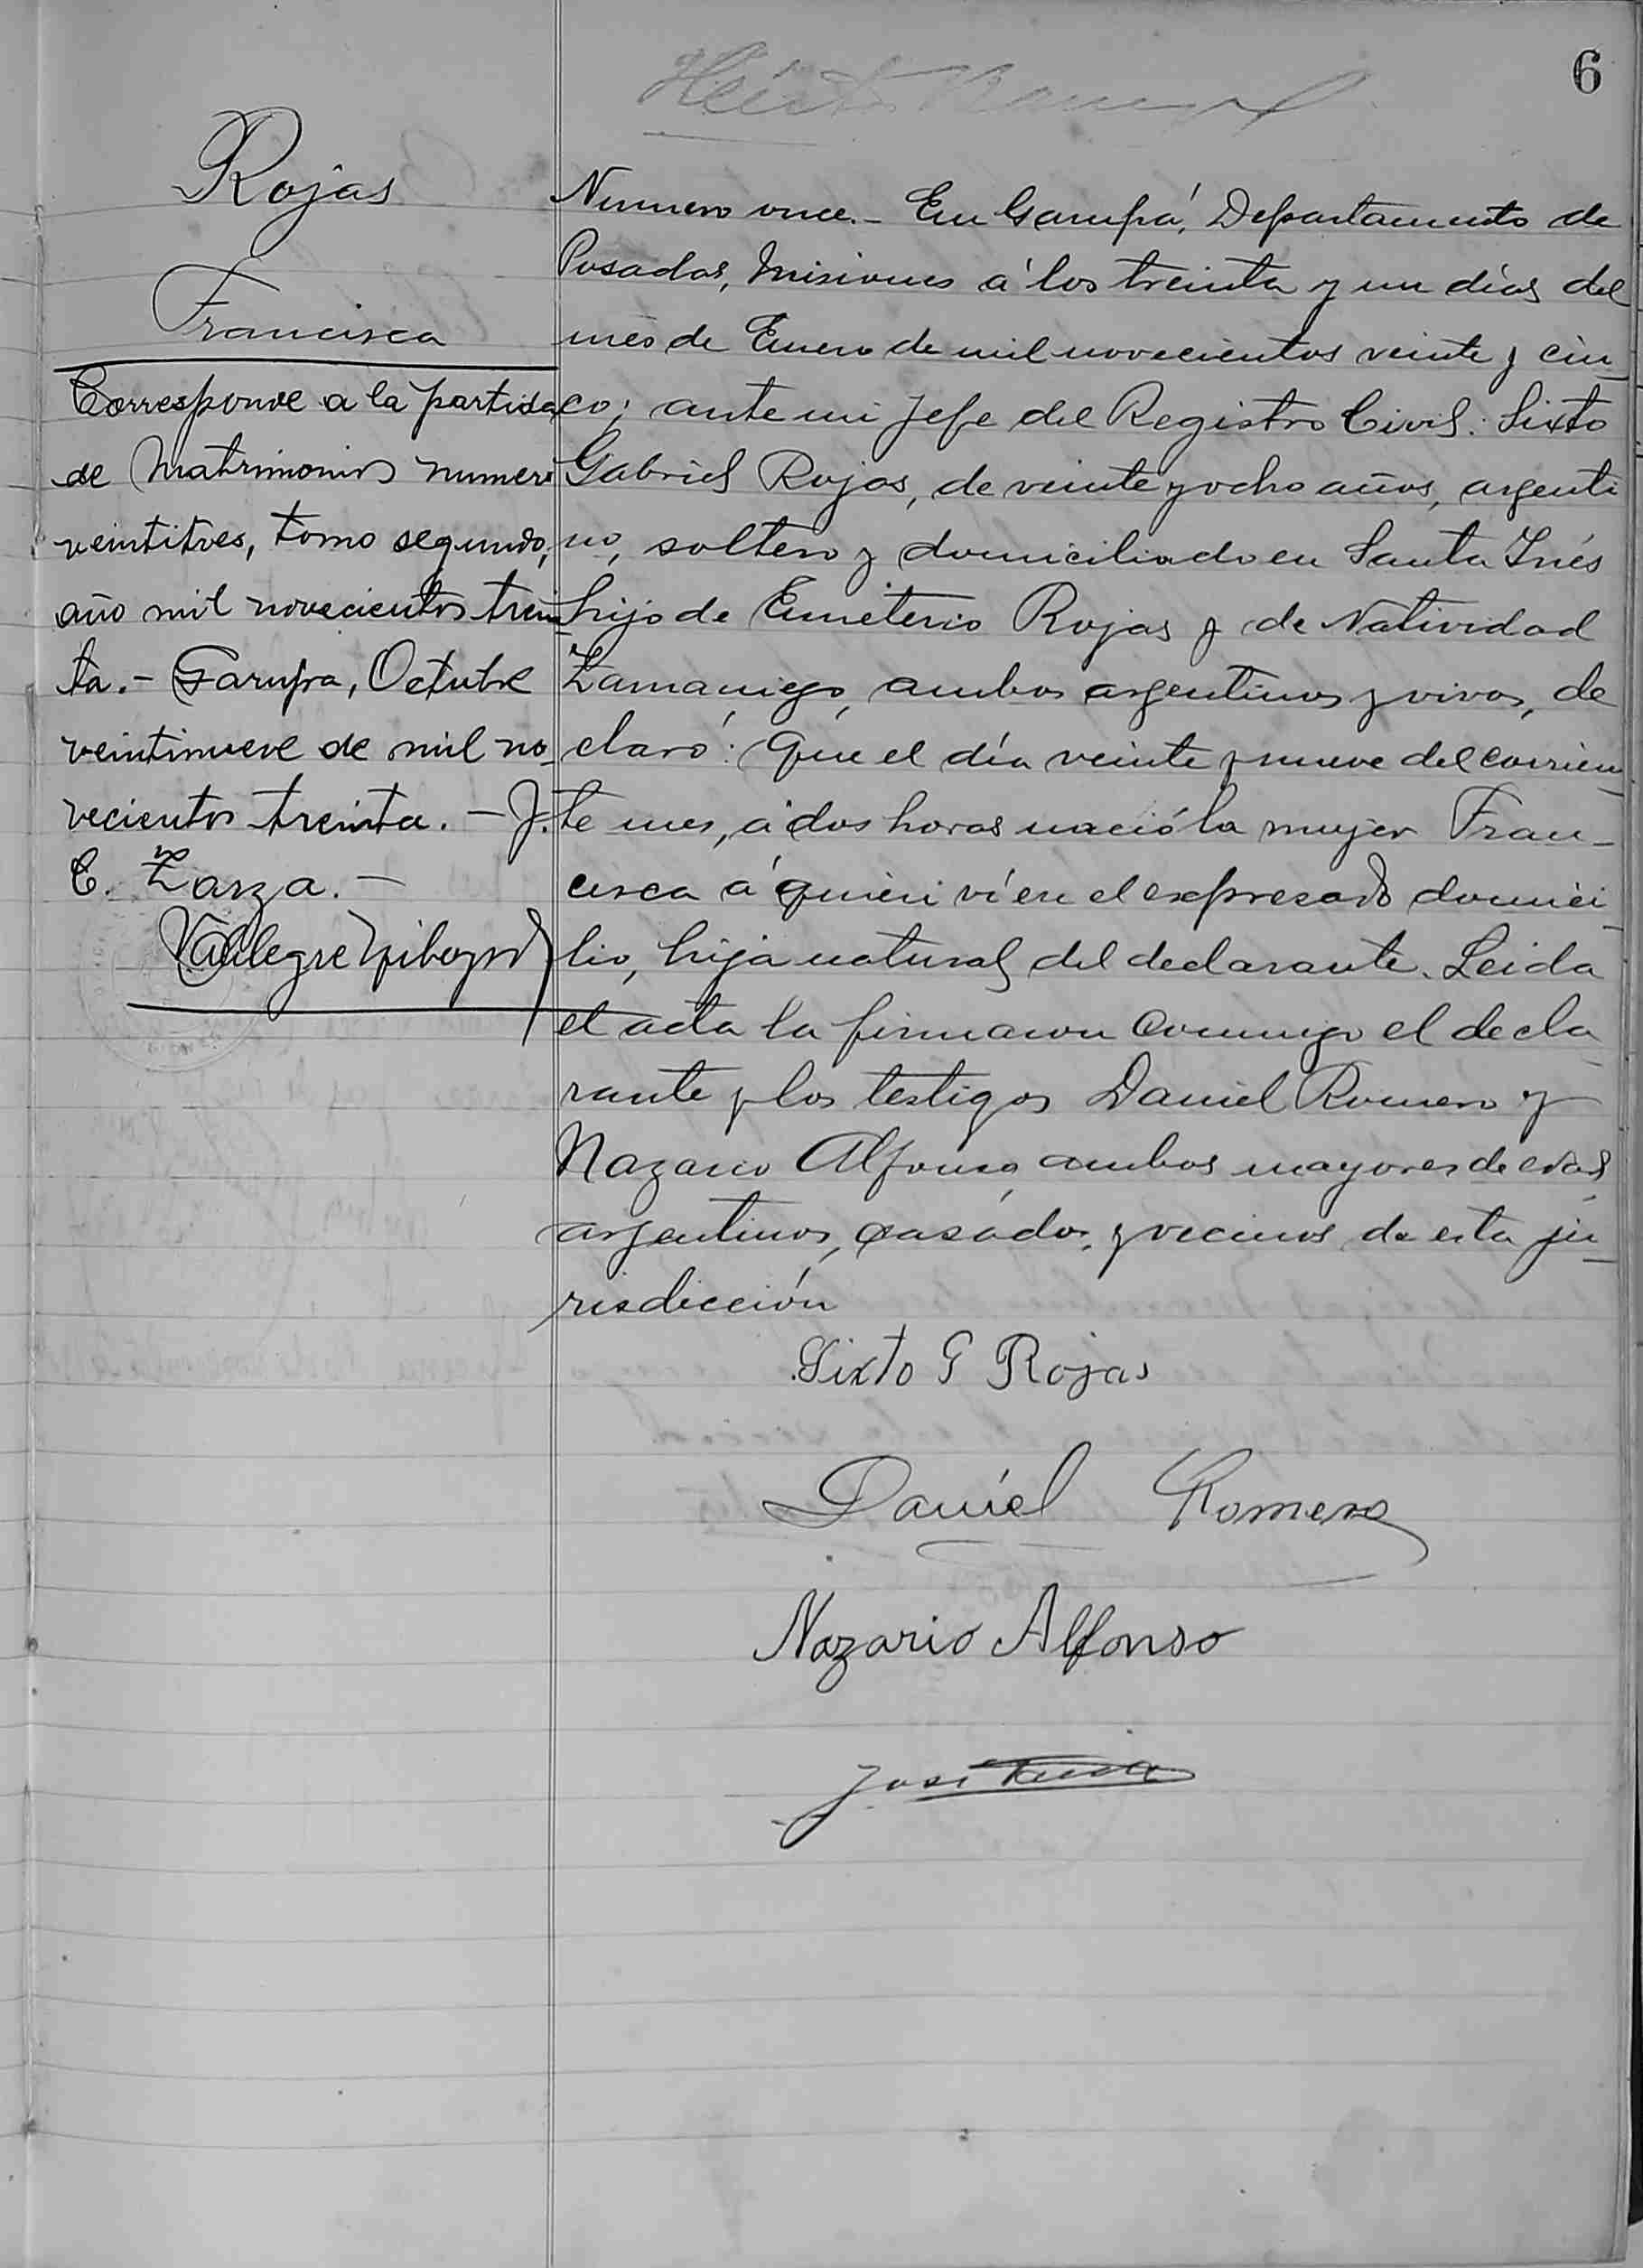 6
Rojas
Francisca
Corresponde a la partida
de Matrimonios numero
veintitres, tomo segundo,
año mil novecientos trein
ta.- Garupa, Octubre
veintinueve de mil no_
vecientos treinta. - J.
C. Zarza. -
Numero once.- En Garupá, Departamento de
Posadas, Misiones á los treinta y un días del
mes de Enero de mil novecientos veinte y cin_
co; ante mi Jefe del Registro Civil: Sixto
Gabriel Rojas, de veinte y ocho años, argenti
no, soltero y domiciliado en Santa Inés
hijo de Emeterio Rojas y de Natividad
Zamaniego, ambos argentinos y vivos, de
claró: Que el día veinte y nueve del corrien_
te mes, á dos horas nació la mujer Fran_
cisca á quien ví en el expresado domici_
lio, hija natural del declarante. Leida
el acta la firmaron conmigo el decla
rante y los testigos Daniel Romero y
Nazario Alfonso, ambos mayores de edad
argentinos, casados, y vecinos de esta ju_
risdicción
Sixto G Rojas
Daniel Romero
Nazario Alfonso
José